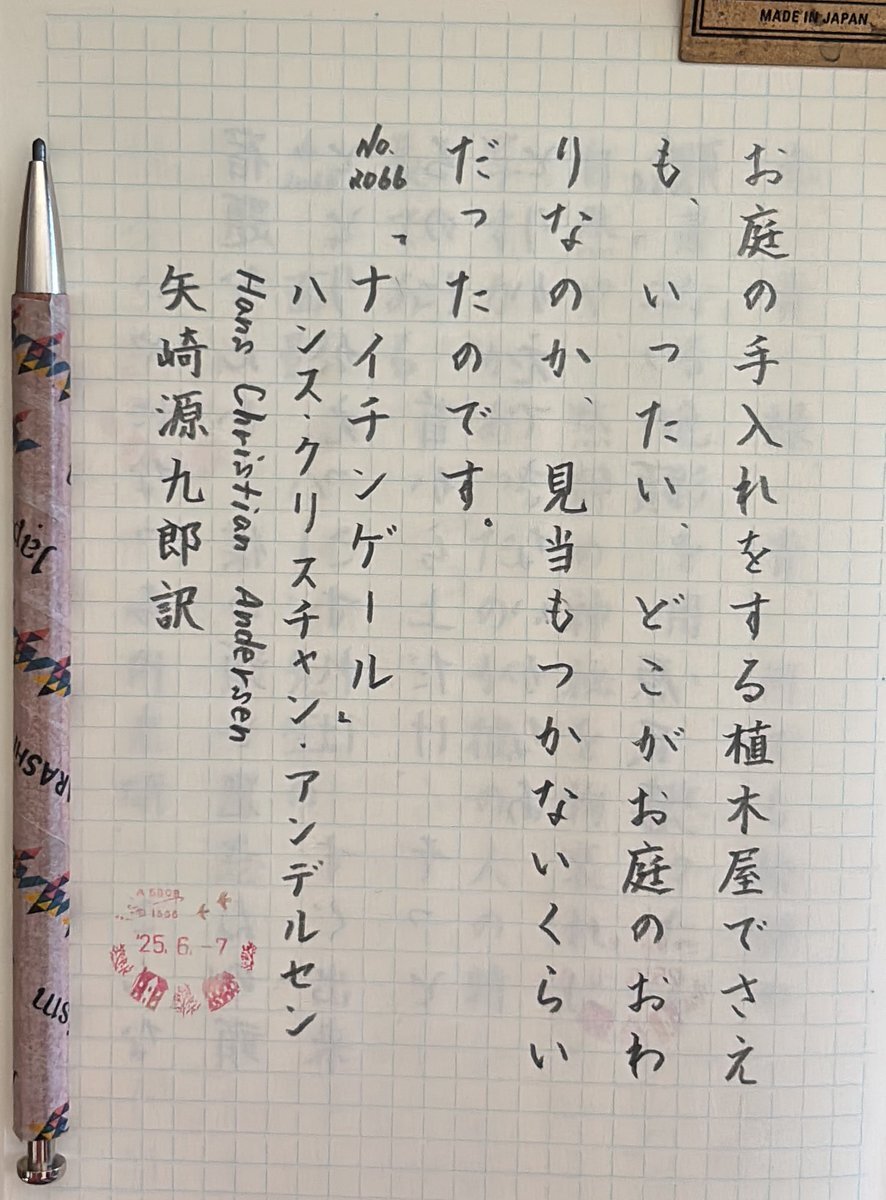 MADE IN JAPAN
お庭の手入れをする植木屋でさえ
も、いったい、どこがお庭のおわ
りなのか、見当もつかないくらい
だったのです。
No.
2066
「ナイチンゲール」
ハンス・クリスチャン・アンデルセン
Hans Christian Andersen
矢崎源九郎訳
'25.6.-7